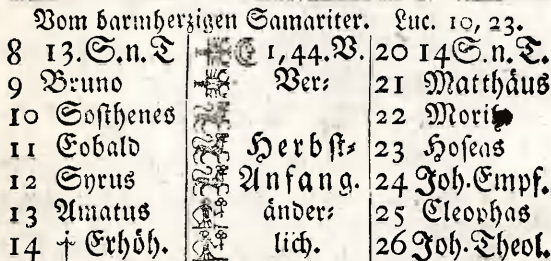 Vom barmherzigen Samariter. Luc. 10, 23.
8 13.S.n.T 1,44.V. 20 14S.n.T.
9 Bruno Ver⸗ 21 Matthäus
10 Sosthenes 22 Moritz
11 Eobald Herbst⸗ 23 Hoseas
12 Syrus Anfang. 24 Joh.Empf.
13 Amatus änder⸗ 25 Cleophas
14 † Erhöh. lich. 26 Joh.Theol.